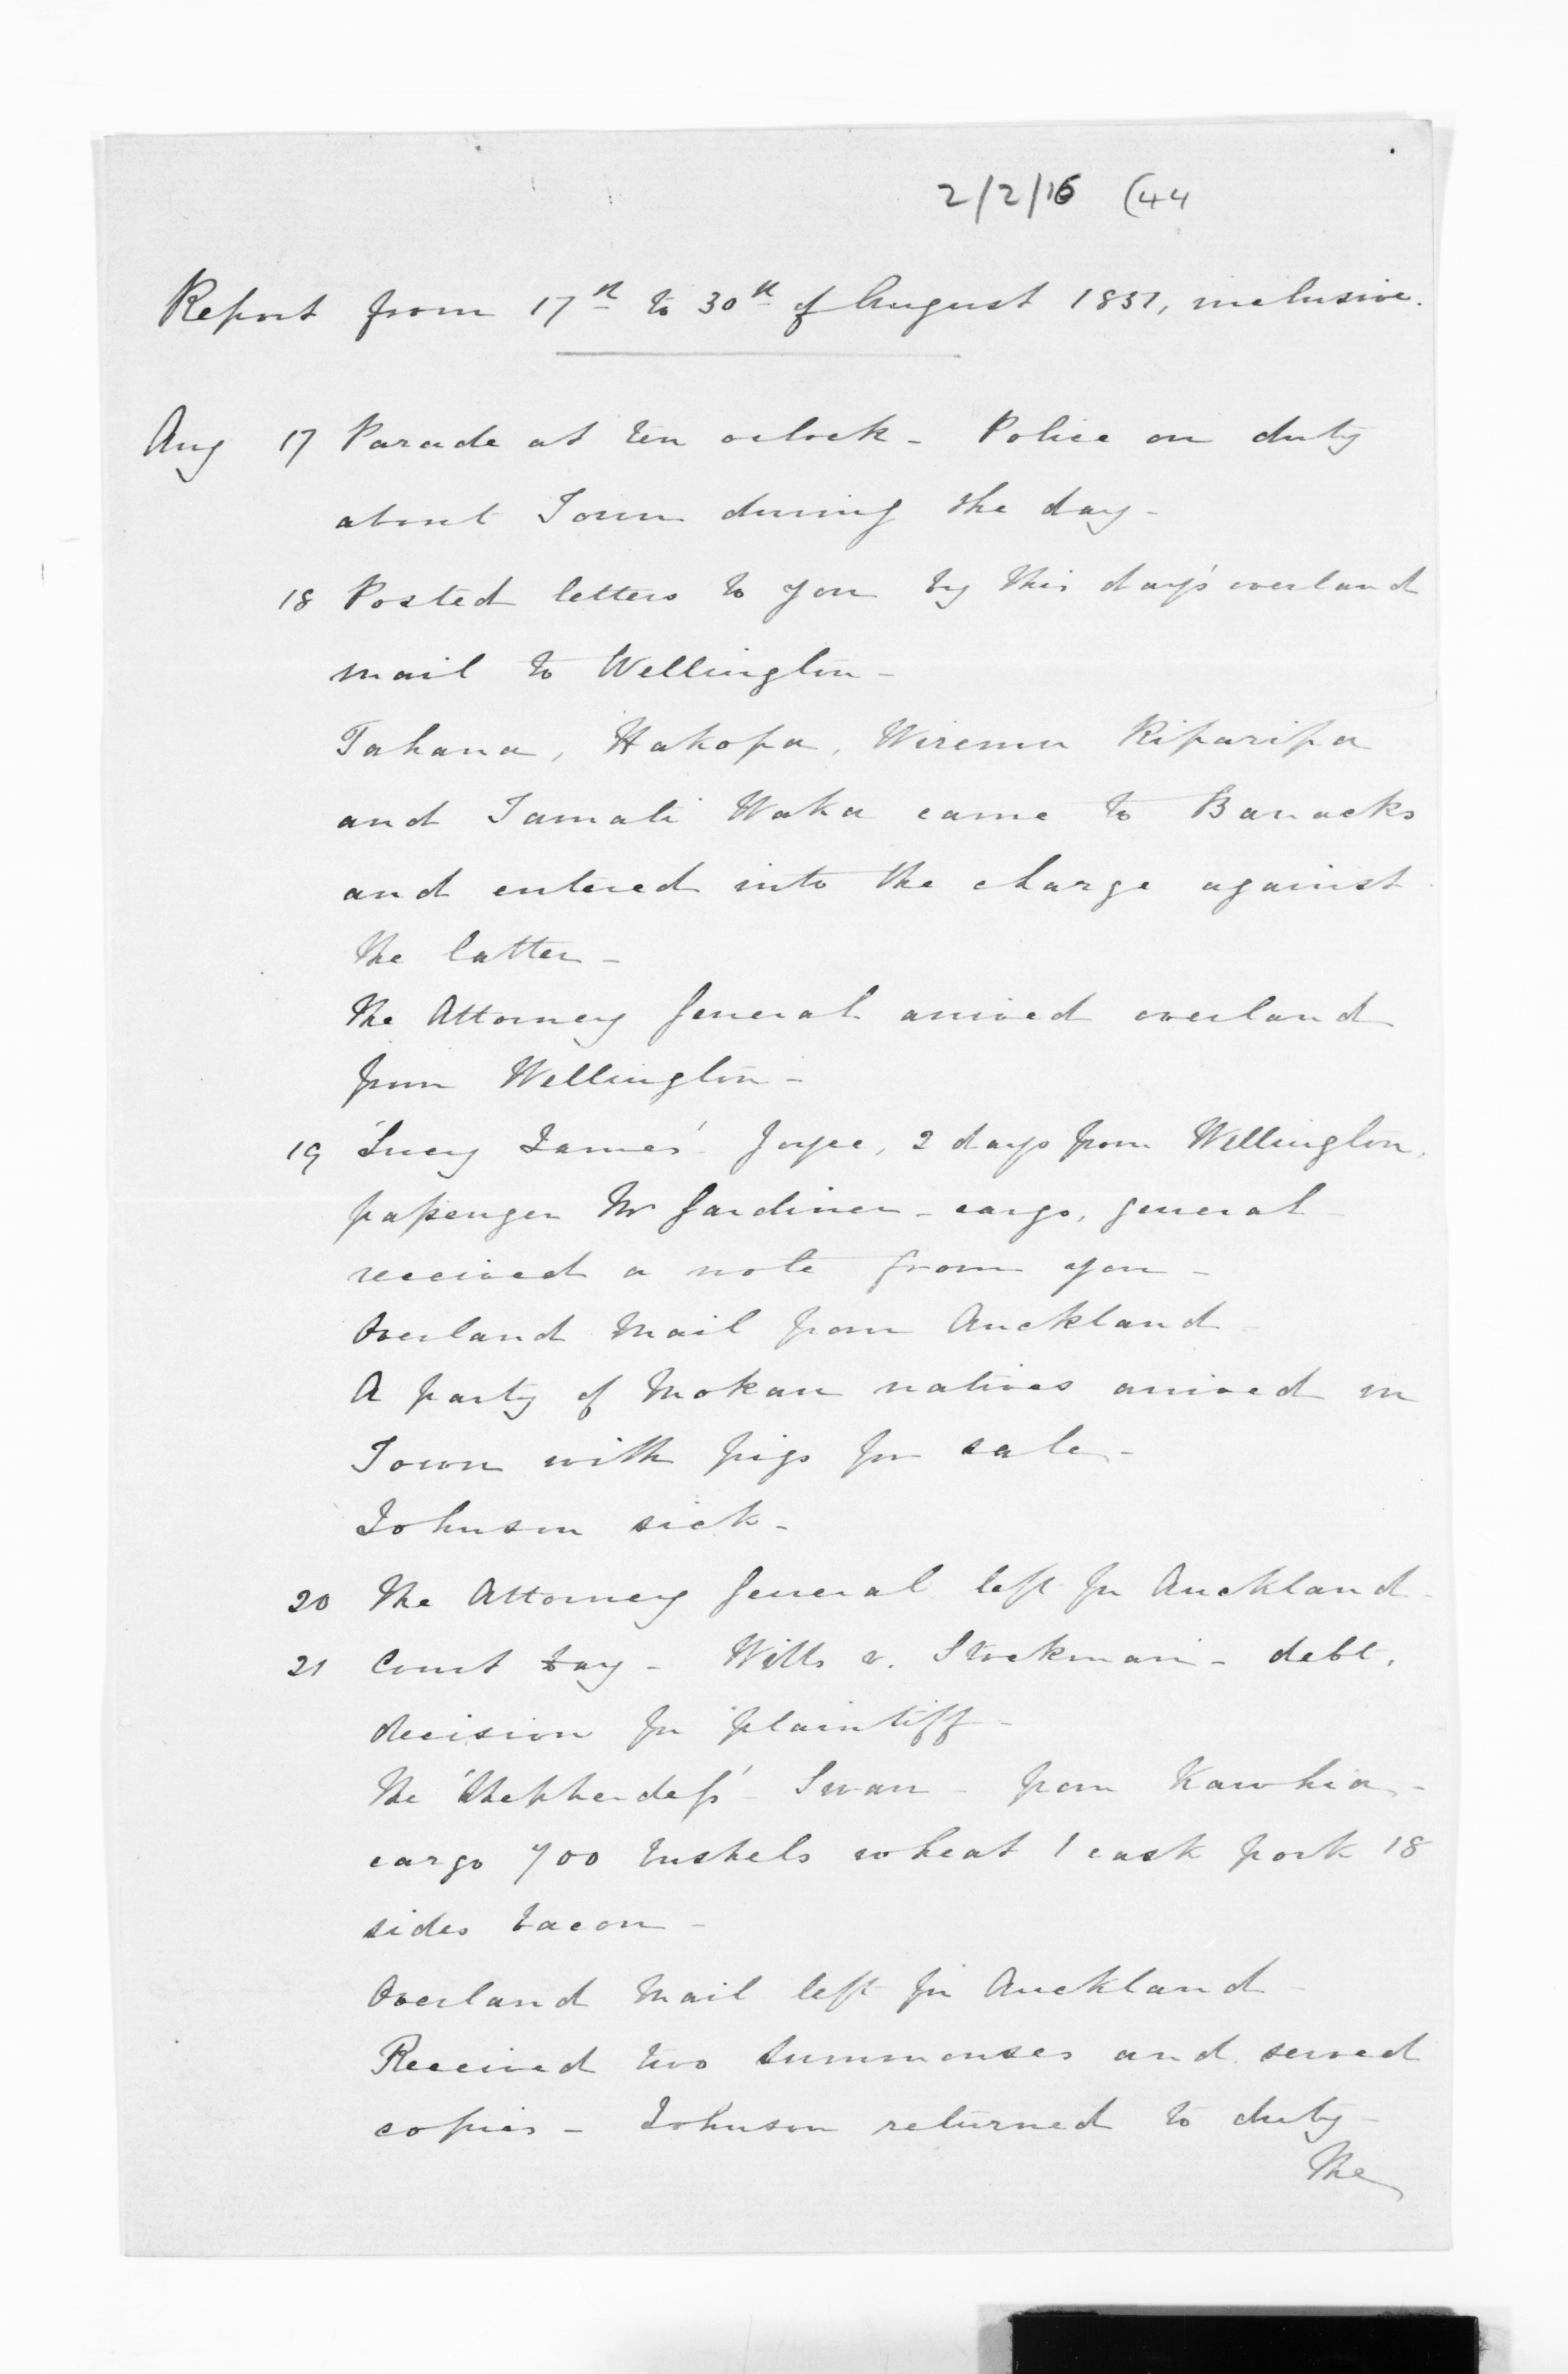 2/2/16 (44
Report from 17th to 30th of August 1851, inclusive.
Aug 17 Parade at ten oclock - Police on duty
about Town during the day -
18 Posted letters to you by this day's overland
mail to Wellington -
Tahana, Hakopa, Wiremu Kiparipa
and Tamati Waka came to Barracks
and entered into the charge against
the latter -
The Attorney General arrived overland
from Wellington -
19 'Lucy James' Joyce, 2 days from Wellington,
passenger Mr Gardiner - cargo, general -
received a note from you -
Overland Mail from Auckland -
A party of Mokau natives arrived in
Town with pigs for sale -
Johnson sick -
20 The Attorney General left for Auckland -
21 Court day - Wills v. Stockman - debt,
decision for plaintiff -
The 'Shepherdess' - Swan - from Kawhia -
cargo 700 bushels wheat 1 cask pork 18
sides bacon -
Overland Mail left for Auckland -
Received two summonses and served
copies - Johnson returned to duty -
The